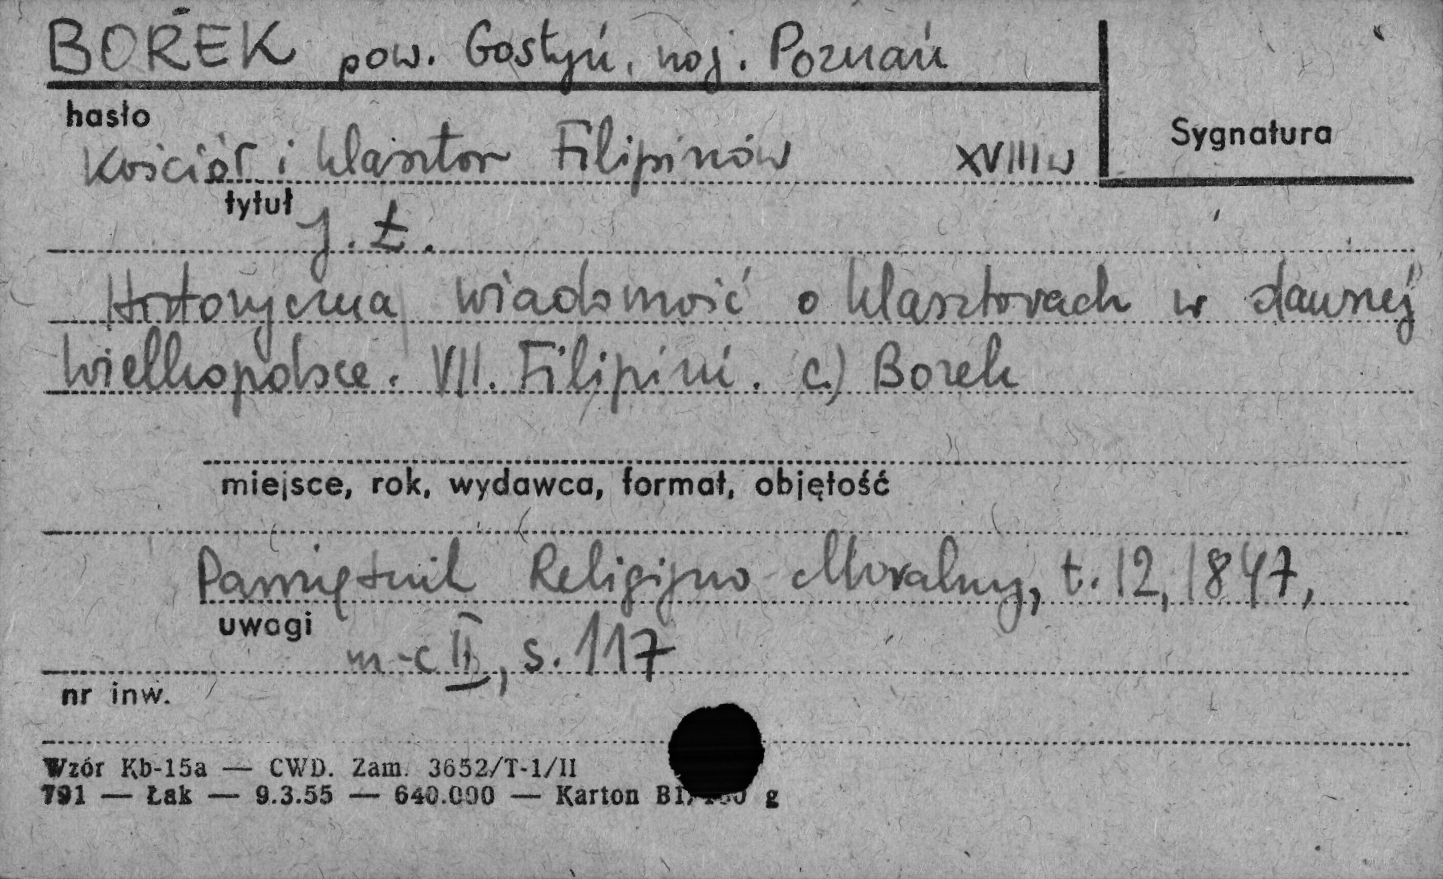 BOREK pow. Gostyń, woj. Poznań
hasło
Sygnatura
Kościół i klasztor Filipinów XVIII w
tytuł
J. Ł.
Historyczna wiadomość o klasztorach w dawnej
Wielkopolsce. VII. Filipini. c) Borek
miejsce, rok, wydawca, format, objętość
Pamiętnik Religijno Moralny, t. 12, 1847,
uwagi
m-c II, s. 117
nr inw.
Wzór Kb-15a — CWD. Zam. 3652/T-1/II
791 — Łak — 9.3.55 — 640.000 — Karton g